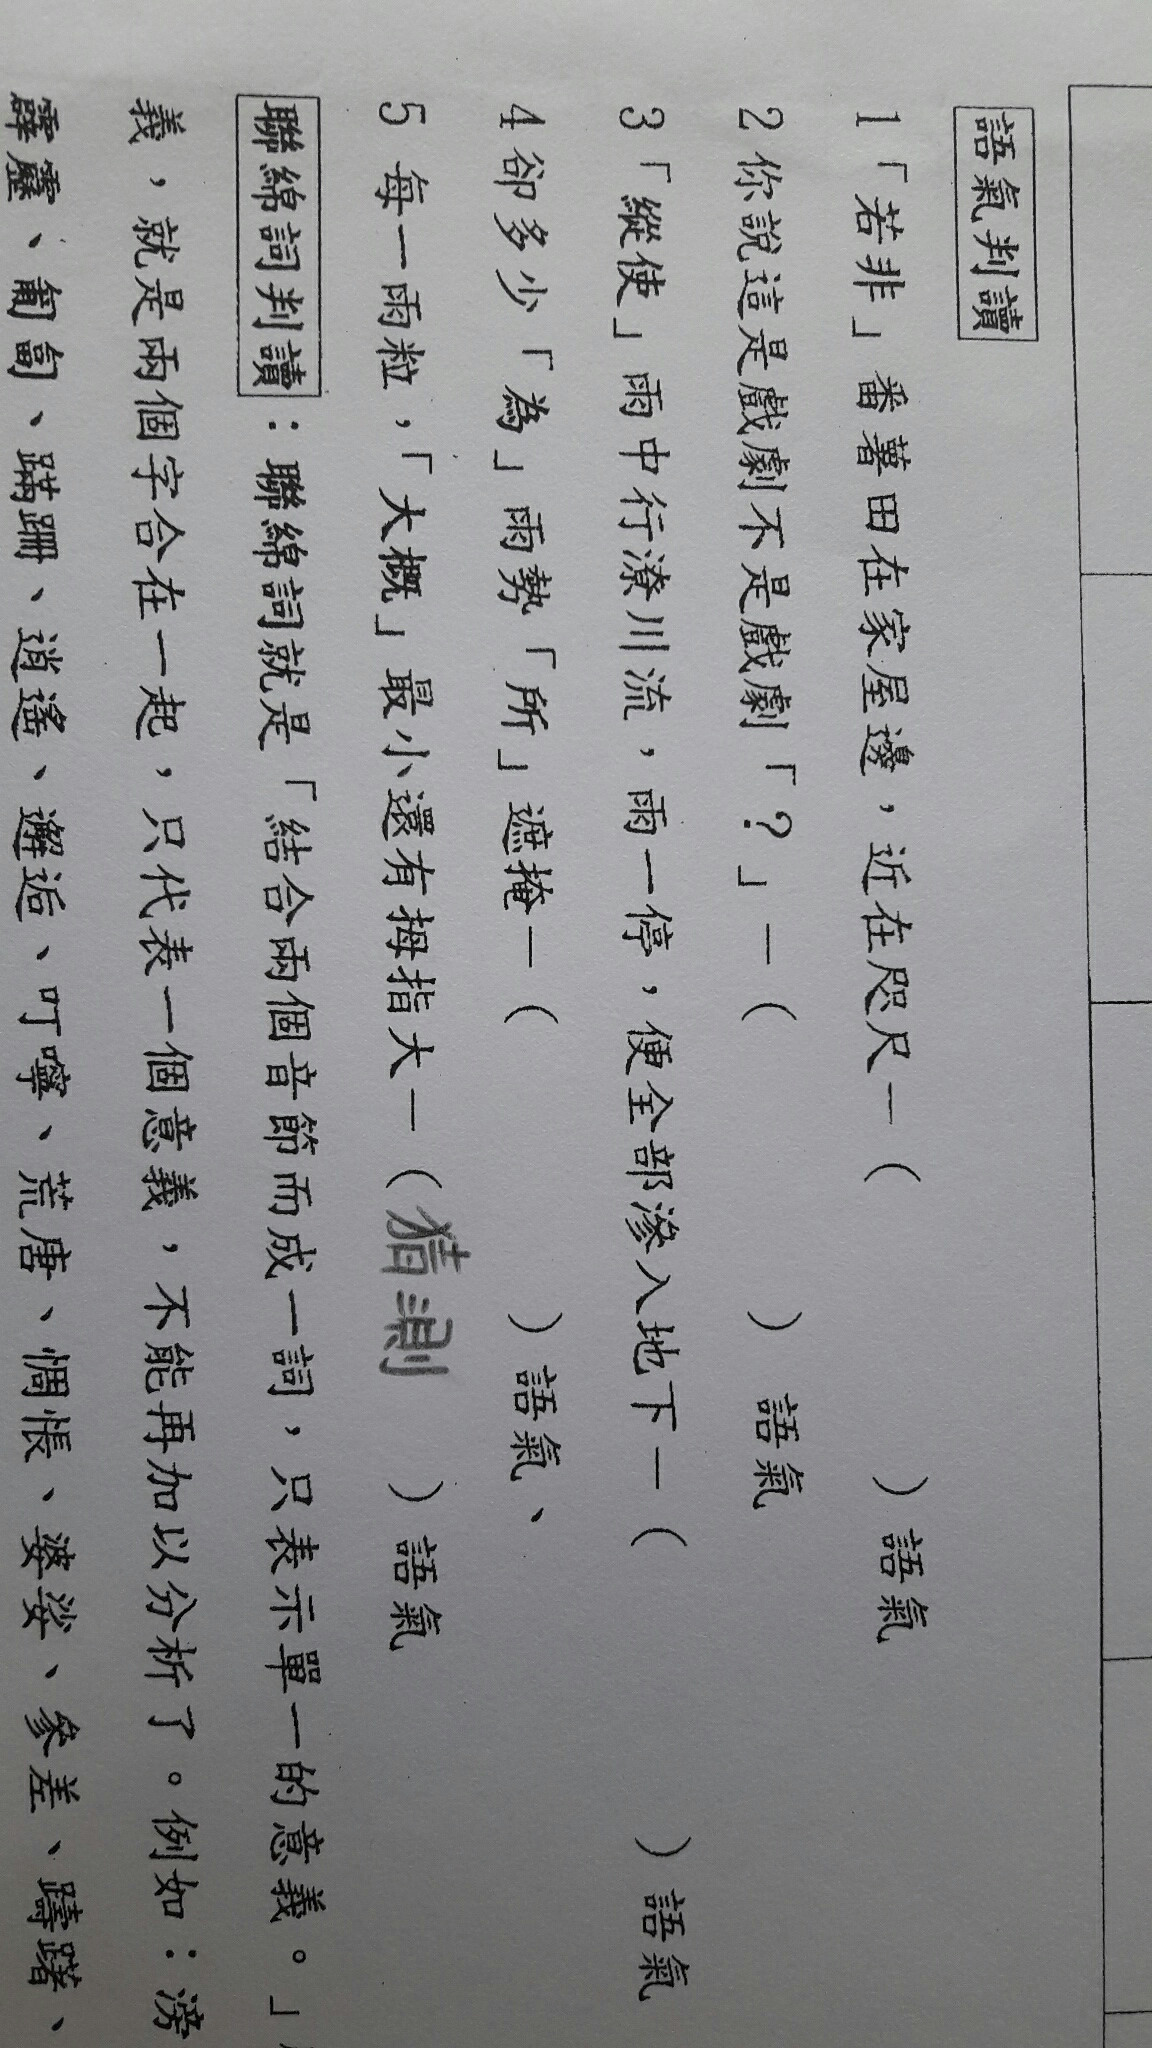 語氣判讀
1「若非」番薯田在家屋邊，近在咫尺—（　　　）語氣
2你說這是戲劇不是戲劇「？」—（　　　）語氣
3「縱使」雨中行潦川流，雨一停，便全部滲入地下—（　　　）語氣
4卻多少「為」雨勢「所」遮掩—（　　　）語氣、
5 每一雨粒，「大概」最小還有拇指大—（猜測　）語氣
聯綿詞判讀：聯綿詞就是「結合兩個音節而成一詞，只表示單一的意義。」
義，就是兩個字合在一起，只代表一個意義，不能再加以分析了。例如：滂
霹靂、匍匐、蹣跚、逍遙、邂逅、叮嚀、荒唐、惆悵、婆娑、參差、躊躇、